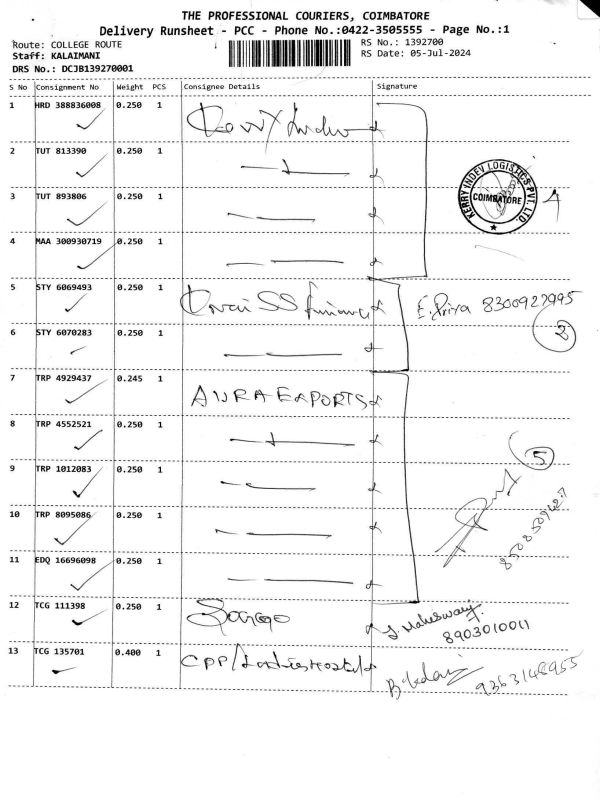 THE PROFESSIONAL COURIERS, COIMBATORE
Delivery Runsheet - PCC - Phone No.:0422-3505555 - Page No.:1
Route: COLLEGE ROUTE
RS No.: 1392700
Staff: KALAIMANI
RS Date: 05-Jul-2024
DRS No.: DCJB139270001
S No Consignment No Weight PCS Consignee Details Signature
1 HRD 388836008 0.250 1
2 TUT 813390 0.250 1
3 TUT 893806 0.250 1
KERRY INDEV LOGISTICS PVT. LTD.
COIMBATORE
4
4 MAA 300930719 0.250 1
5 STY 6069493 0.250 1 E. Priya 8300927995
6 STY 6070283 0.250 1
2
7 TRP 4929437 0.245 1 AURA EXPORTS
8 TRP 4552521 0.250 1
5
9 TRP 1012083 0.250 1
10 TRP 8095086 0.250 1
11 EDQ 16696098 0.250 1
12 TCG 111398 0.250 1 Maheswari
8903010011
13 TCG 135701 0.400 1 CPP/ Ladies Hostel
9363148955